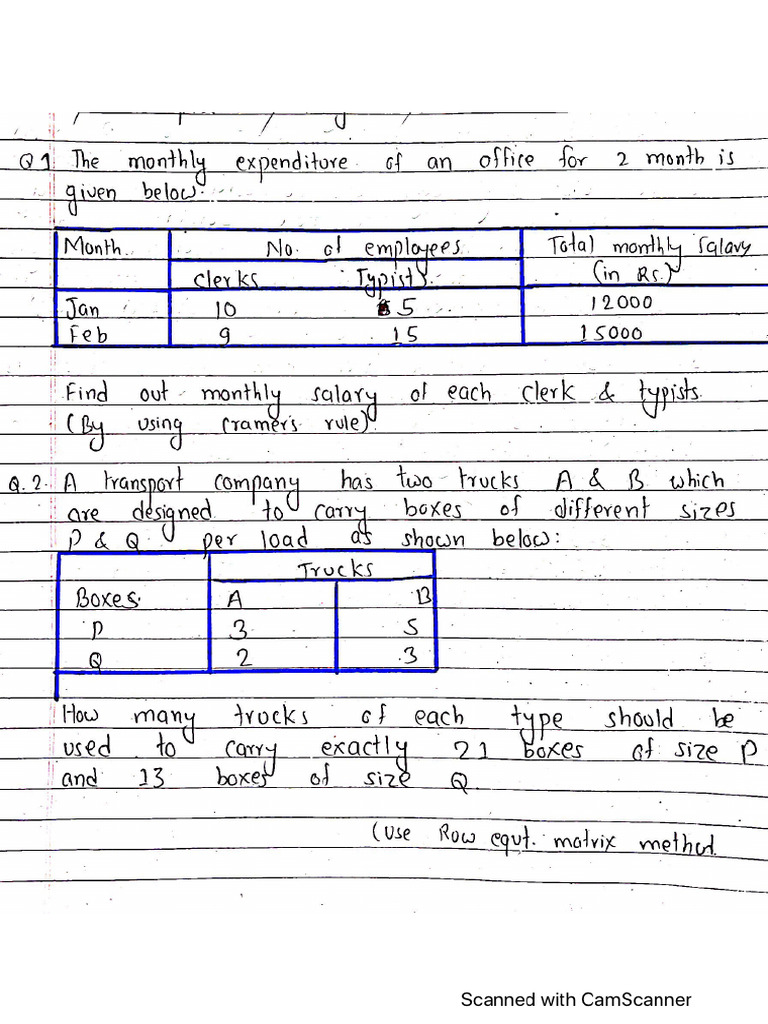 Q1 The monthly expenditure of an office for 2 month is
given below.
Month No. of employees Total monthly salary
Clerks Typists (in Rs.)
Jan 10 5 12000
Feb 9 15 15000
Find out monthly salary of each clerk & typists.
(By using cramer's rule)
Q.2. A transport company has two trucks A & B which
are designed to carry boxes of different sizes
P & Q per load as shown below:
Trucks
Boxes. A B
P 3 5
Q 2 3
How many trucks of each type should be
used to carry exactly 21 boxes of size P
and 13 boxes of size Q.
(Use Row equt. matrix method.
Scanned with CamScanner